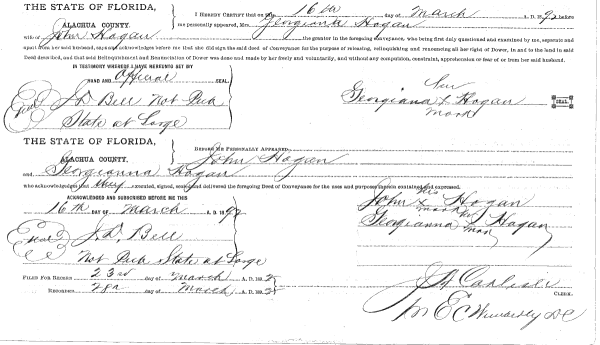 THE STATE OF FLORIDA,
ALACHUA COUNTY.
I HEREBY CERTIFY that on this 16th day of March A. D. 1892 before
me personally appeared, Mrs. Georgiana Hogan
wife of John Hogan the grantor in the foregoing conveyance, who being first duly questioned and examined by me, separate and
apart from her said husband, says and acknowledges before me that she did sign the said deed of Conveyance for the purpose of releasing, relinquishing and renouncing all her right of Dower, in and to the land in said
Deed described, and that said Relinquishment and Renunciation of Dower was done and made by her freely and voluntarily, and without any compulsion, constraint, apprehension or fear of or from her said husband.
IN TESTIMONY WHEREOF I HAVE HEREUNTO SET MY
HAND AND Official SEAL.
Seal J. D. Bell Not Pub
State at Large
Her
Georgiana x Hogan SEAL.
Mark
THE STATE OF FLORIDA,
ALACHUA COUNTY.
BEFORE ME PERSONALLY APPEARED John Hogan
and Georgianna Hogan
who acknowledged that they executed, signed, sealed and delivered the foregoing Deed of Conveyance for the uses and purposes therein contained and expressed.
ACKNOWLEDGED AND SUBSCRIBED BEFORE ME THIS
16th DAY OF March A. D. 1892
Seal J. D. Bell
Not Pub State at Large
his
John x Hogan
mark her
Georgianna x Hogan
mark
FILED FOR RECORD 23rd day of March A. D. 1892
RECORDED day of March A. D. 1892
J A Carlisle
CLERK.
E C Wimberly DC